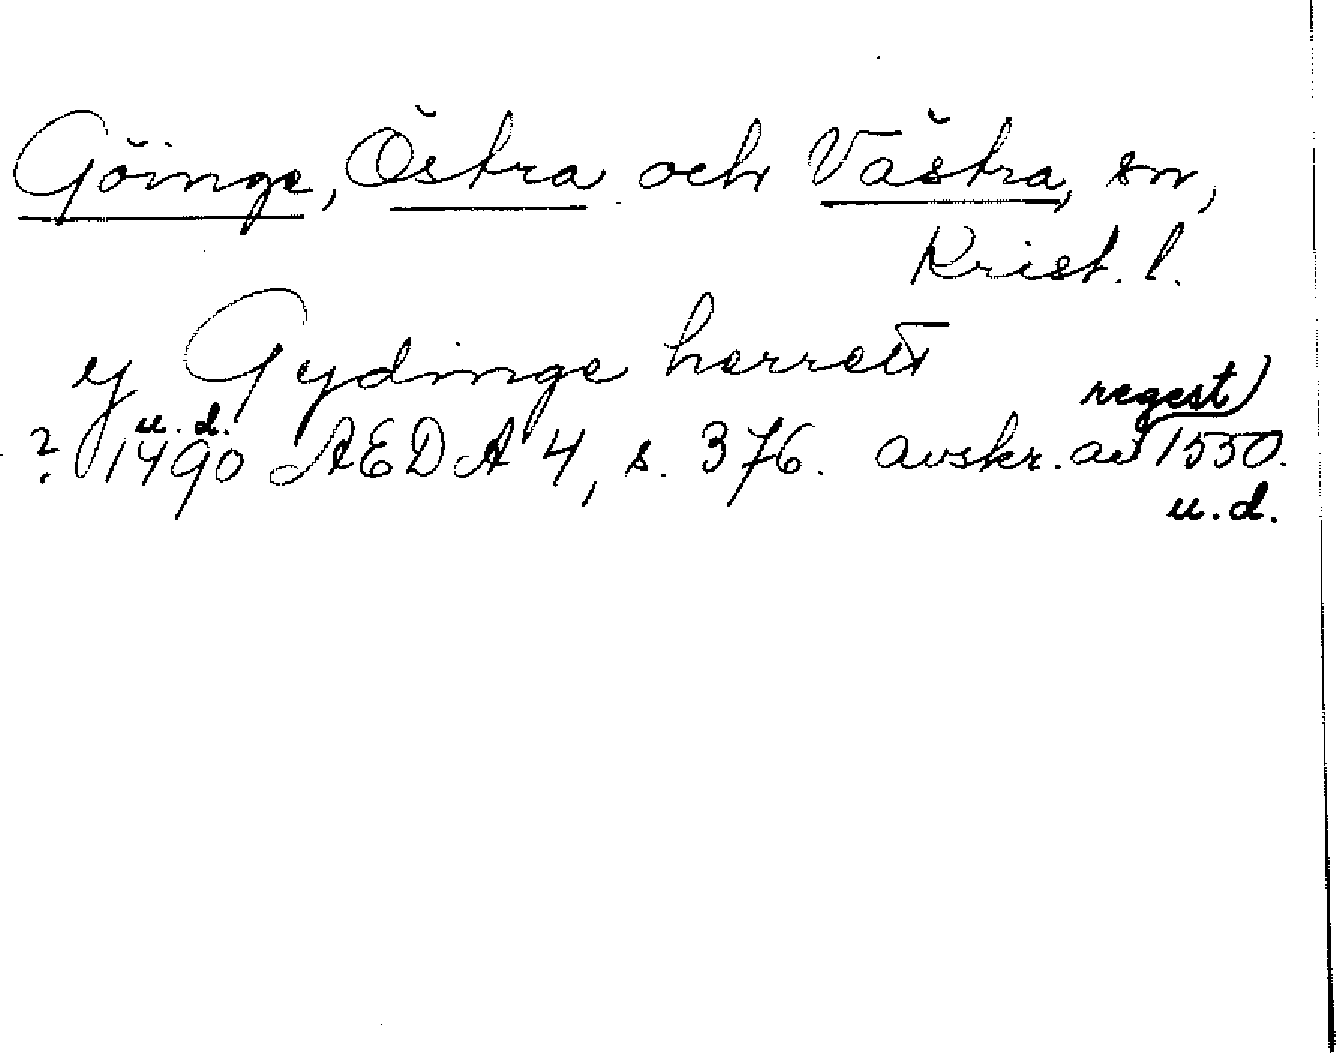 Göinge, Östra och Västra, sn,
Krist. l.
y Gydinge herrett
? 1490 u. d. AEDA 4, s. 376. avskr. av regest 1550.
u. d.